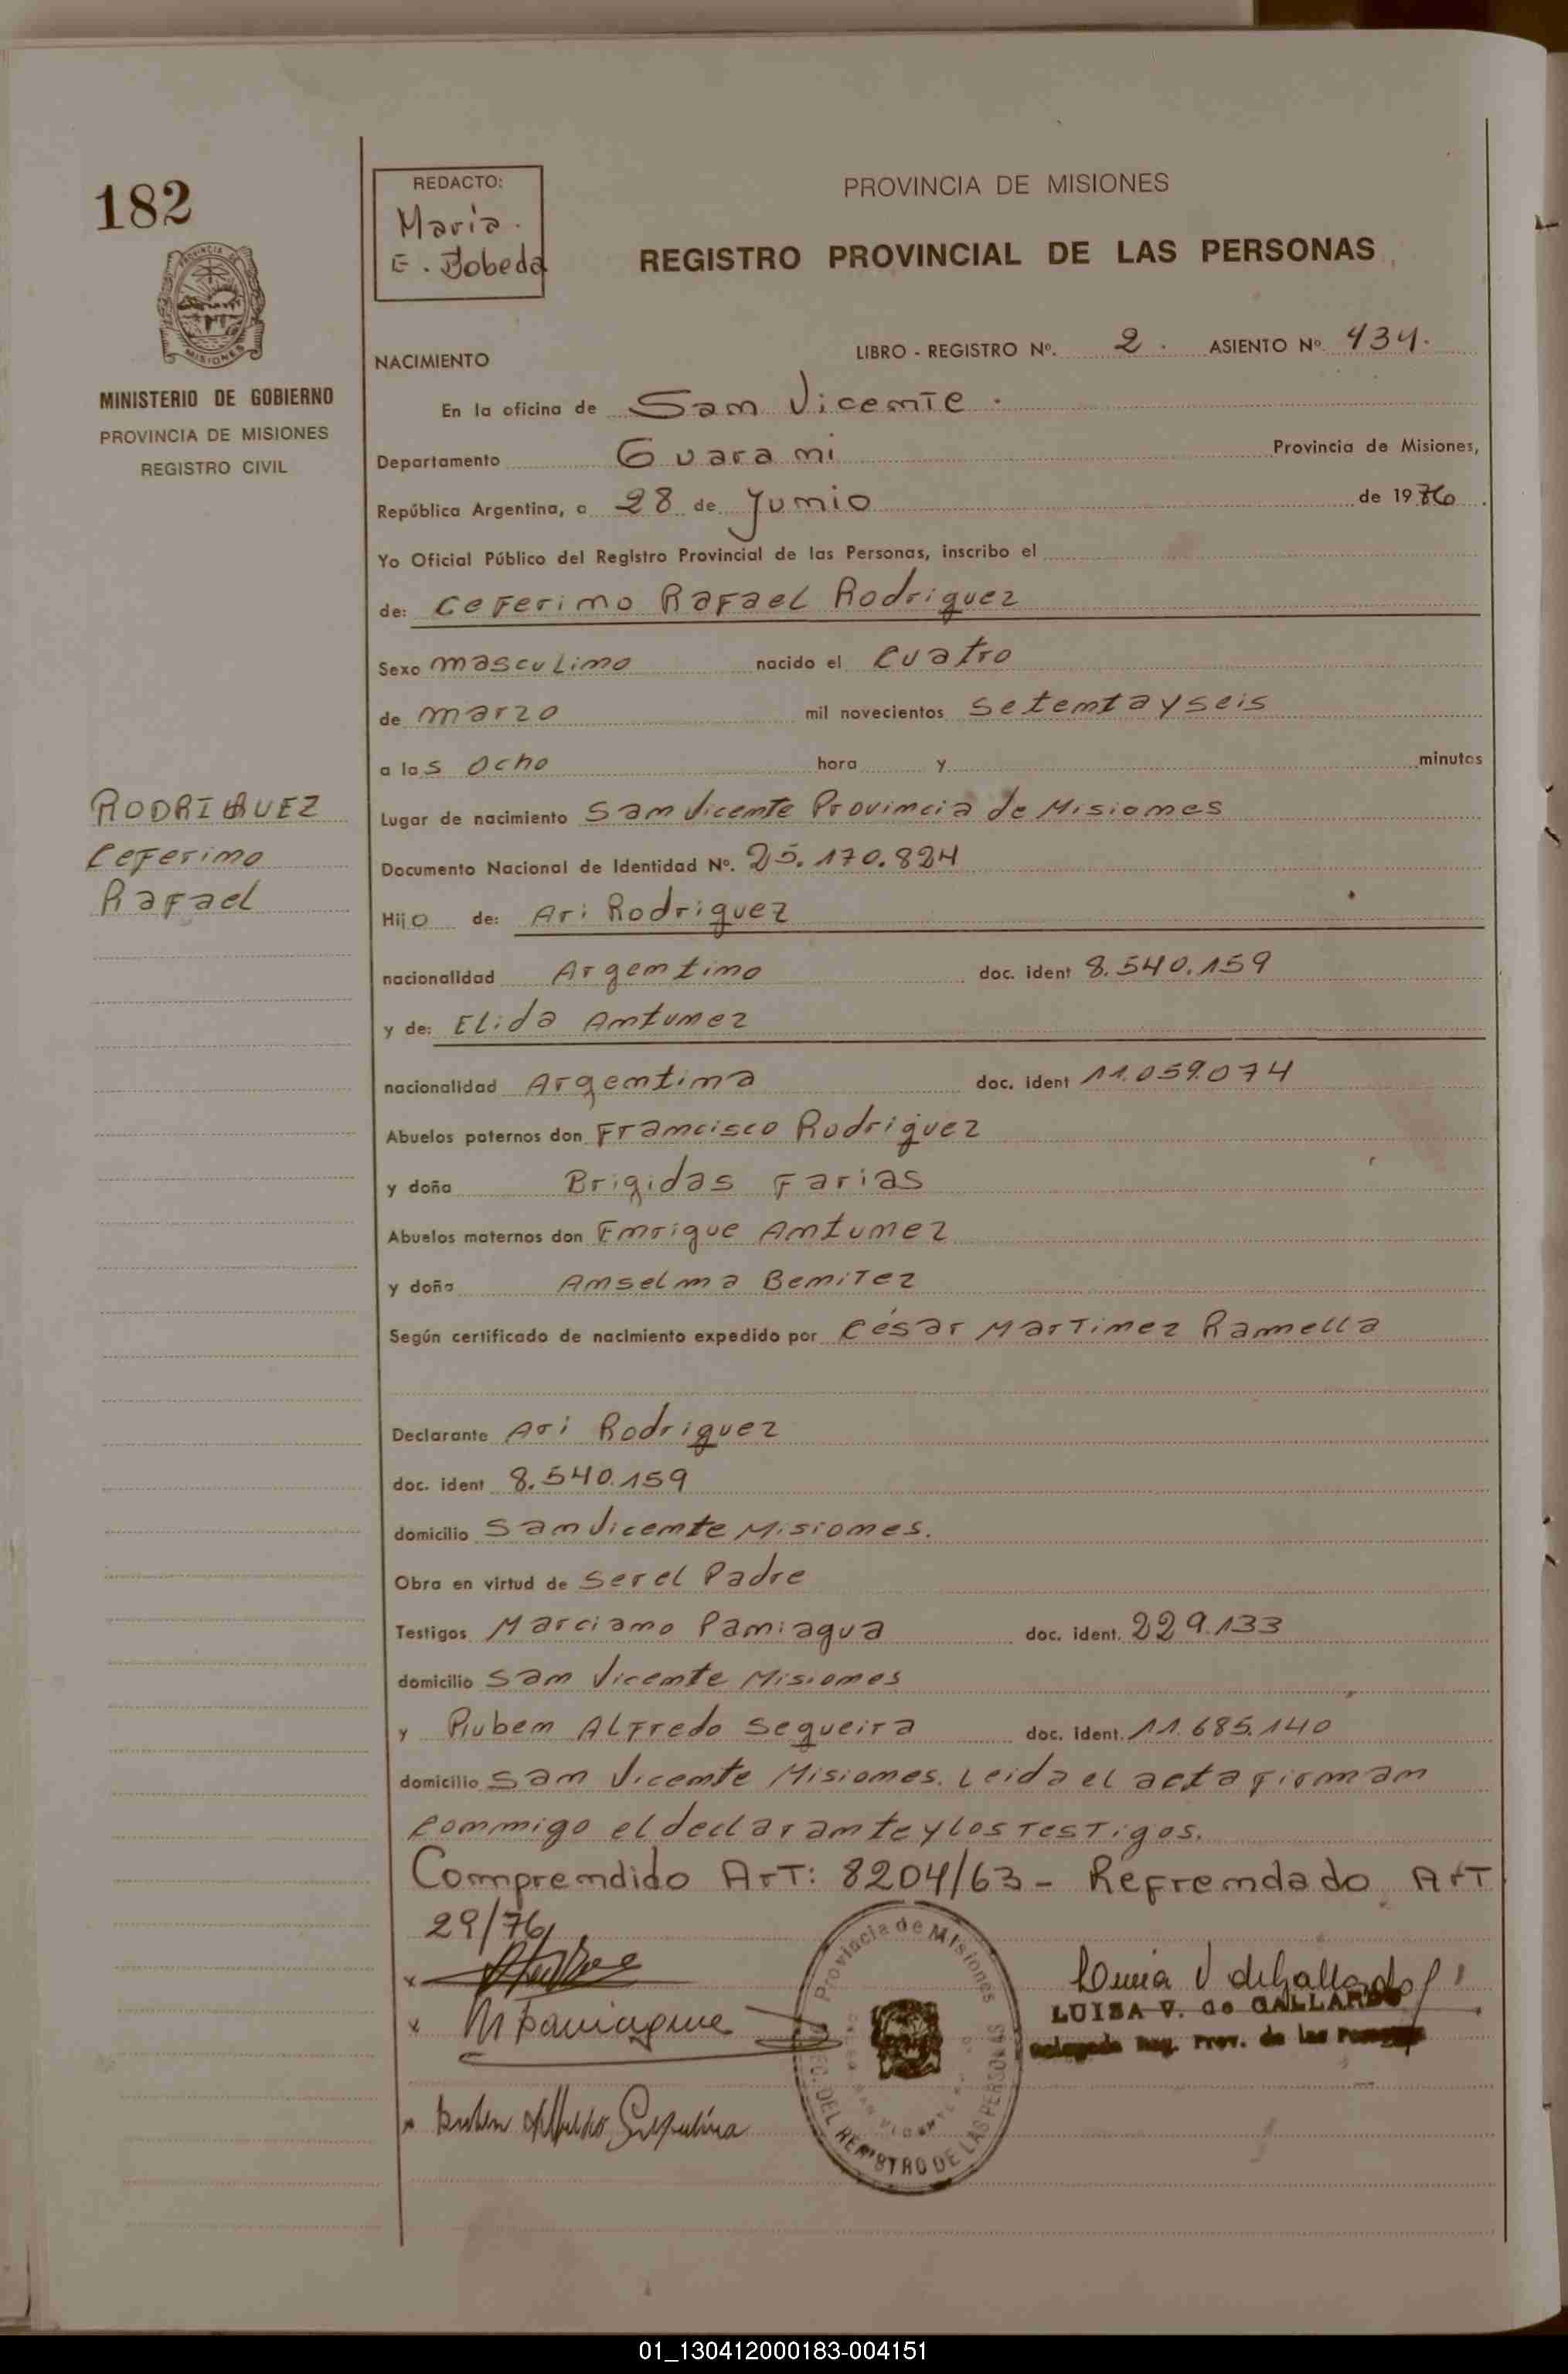 182
REDACTO:
Maria.
E. Bobeda
PROVINCIA DE MISIONES
REGISTRO PROVINCIAL DE LAS PERSONAS
PROVINCIA DE
MISIONES
MINISTERIO DE GOBIERNO
PROVINCIA DE MISIONES
REGISTRO CIVIL
NACIMIENTO
LIBRO - REGISTRO Nº. 2. ASIENTO Nº. 434.
En la oficina de San Vicente.
Departamento Guarani Provincia de Misiones,
República Argentina, a 28 de Junio de 1976.
Yo Oficial Público del Registro Provincial de las Personas, inscribo el
de: Ceferino Rafael Rodriguez
Sexo masculino nacido el cuatro
de marzo mil novecientos setentayseis
a las ocho hora y minutos
RODRIGUEZ
Ceferino
Rafael
Lugar de nacimiento San Vicente Provincia de Misiones
Documento Nacional de Identidad Nº. 25.170.824
Hijo de: Ari Rodriguez
nacionalidad Argentino doc. ident 8.540.159
y de: Elida Antunez
nacionalidad Argentina doc. ident 11.059.074
Abuelos paternos don Francisco Rodriguez
y doña Brigidas Farias
Abuelos maternos don Enrique Antunez
y doña Anselma Benitez
Según certificado de nacimiento expedido por César Martinez Ramella
Declarante Ari Rodriguez
doc. ident 8.540.159
domicilio San Vicente Misiones.
Obra en virtud de ser el Padre
Testigos Marciano Paniagua doc. ident. 229.133
domicilio San Vicente Misiones
y Ruben Alfredo Segueira doc. ident. 11.685.140
domicilio San Vicente Misiones. Leida el acta firman
conmigo el declarante y los testigos.
Comprendido Art: 8204/63 - Refrendado Art
29/76
M Paniagua
Provincia de Misiones
DEL REGISTRO DE LAS PERSONAS
SAN VICENTE
Luisa V de Gallardo
LUISA V. de GALLARDO
Delegada Reg. Prov. de las Personas
Ruben Alfredo Sequeira
01_130412000183-004151